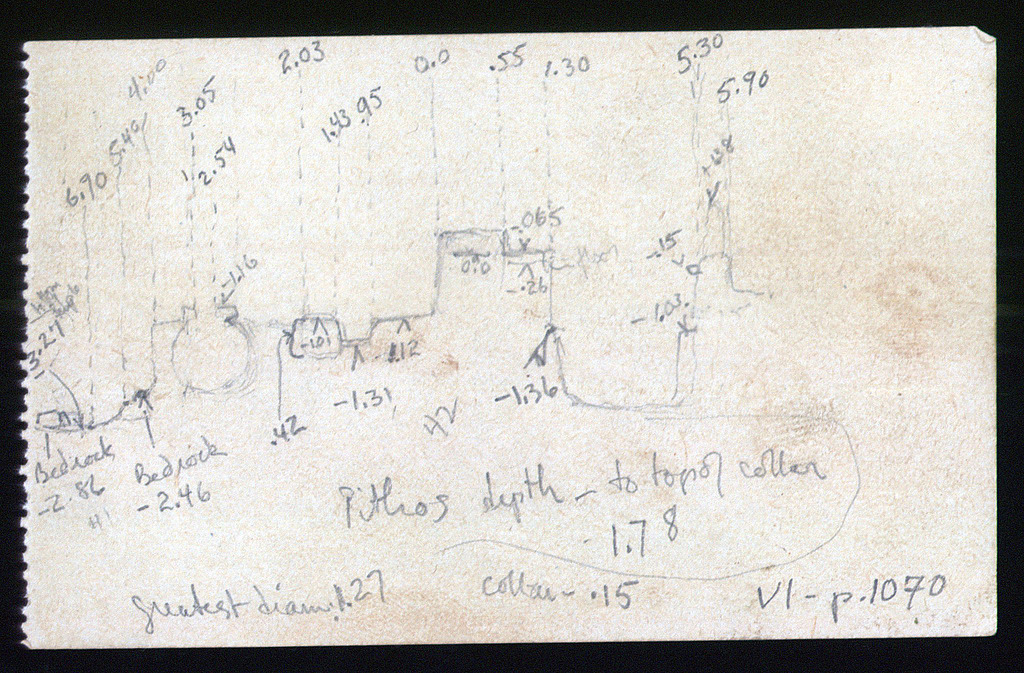 2.03
0.0
.55
1.30
5.30
4.00
3.05
1.43
.95
5.90
5.40
2.54
6.90
-.065
-.15
-1.16
0.0
-.26
-1.03
-3.27
-1.01
-1.12
-1.31
-1.36
.42
Bedrock
-2.86
Bedrock
-2.46
Pithos depth - to top of collar
-1.78
greatest diam. 1.27
collar - .15
VI - p.1070